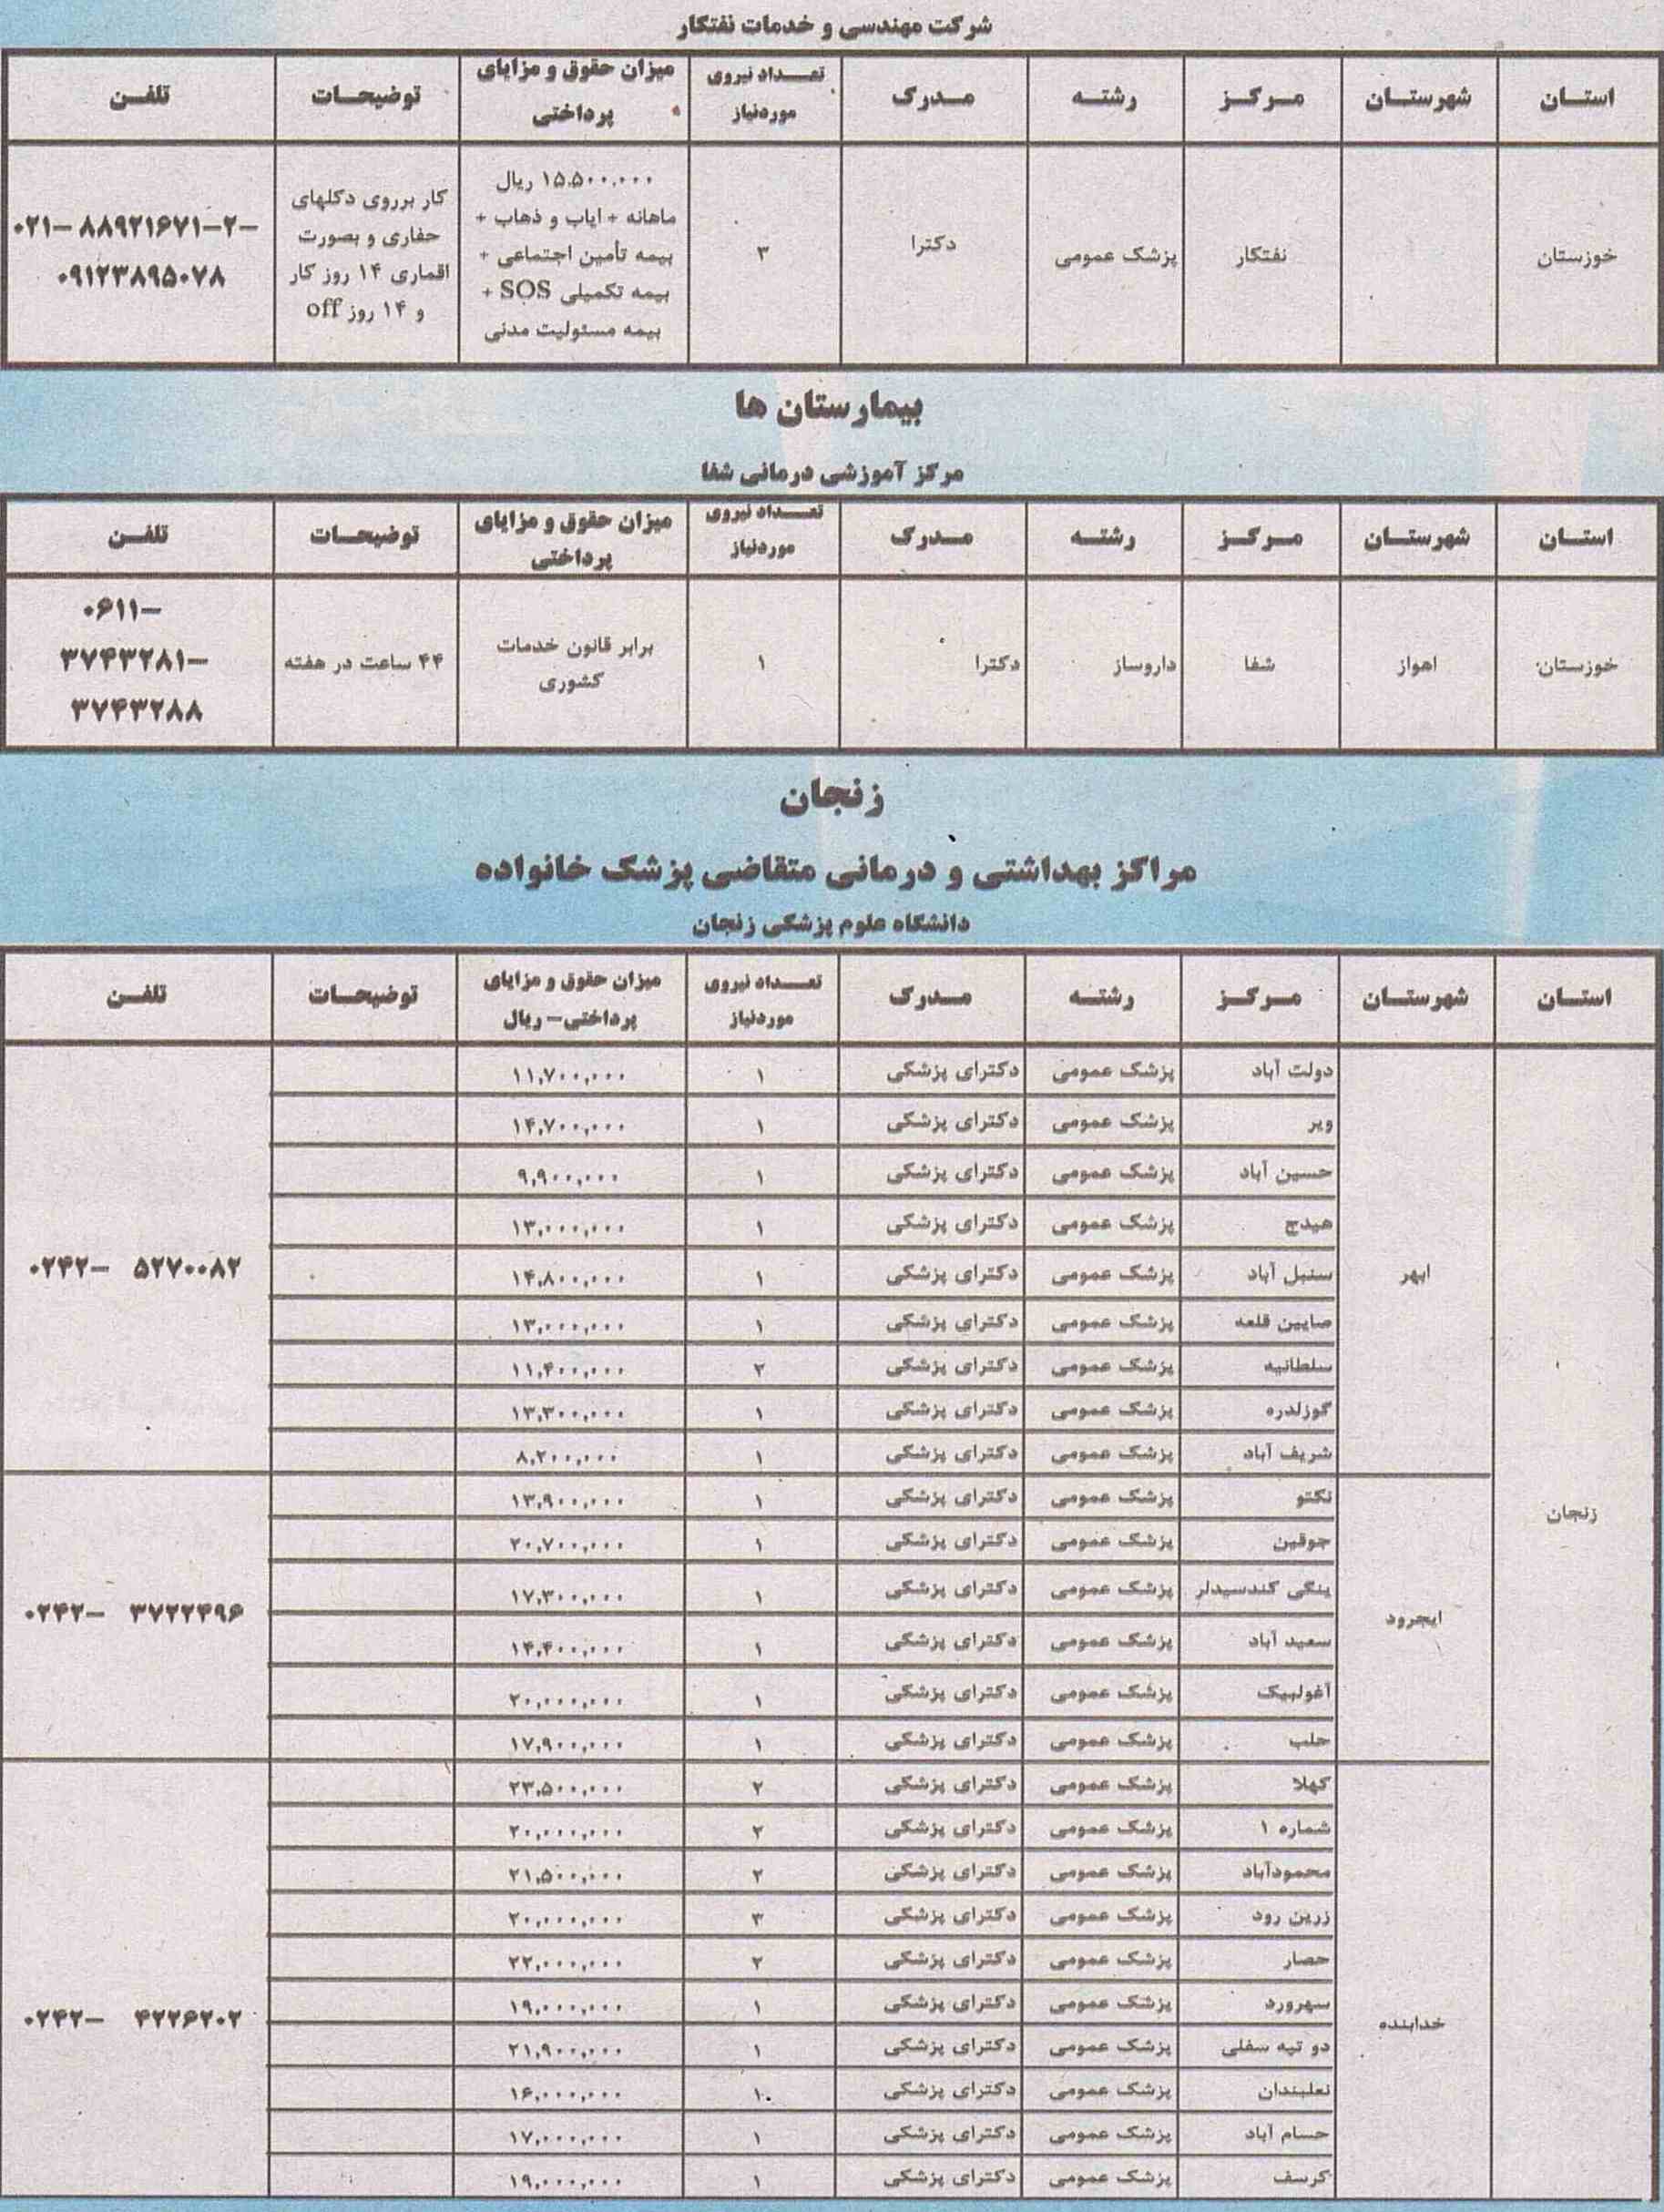 شرکت مهندسی و خدمات نفتکار
استان شهرستان مرکز رشته مدرک تعداد نیروی موردنیاز میزان حقوق و مزایای پرداختی توضیحات تلفن
خوزستان نفتکار پزشک عمومی دکترا ۳
۱۵.۵۰۰.۰۰۰ ریال
ماهانه + ایاب و ذهاب +
بیمه تأمین اجتماعی +
بیمه تکمیلی SOS +
بیمه مسئولیت مدنی
کار برروی دکلهای
حفاری و بصورت
اقماری ۱۴ روز کار
و ۱۴ روز off
۰۲۱–۸۸۹۲۱۶۷۱–۲–
۰۹۱۲۳۸۹۵۰۷۸
بیمارستان ها
مرکز آموزشی درمانی شفا
استان شهرستان مرکز رشته مدرک تعداد نیروی موردنیاز میزان حقوق و مزایای پرداختی توضیحات تلفن
خوزستان اهواز شفا داروساز دکترا ۱
برابر قانون خدمات
کشوری
۴۴ ساعت در هفته
۰۶۱۱–
۳۷۴۳۲۸۱–
۳۷۴۳۲۸۸
زنجان
مراکز بهداشتی و درمانی متقاضی پزشک خانواده
دانشگاه علوم پزشکی زنجان
استان شهرستان مرکز رشته مدرک تعداد نیروی موردنیاز میزان حقوق و مزایای پرداختی– ریال توضیحات تلفن
زنجان
ابهر
دولت آباد پزشک عمومی دکترای پزشکی ۱ ۱۱,۷۰۰,۰۰۰
ویر پزشک عمومی دکترای پزشکی ۱ ۱۴,۷۰۰,۰۰۰
حسین آباد پزشک عمومی دکترای پزشکی ۱ ۹,۹۰۰,۰۰۰
هیدج پزشک عمومی دکترای پزشکی ۱ ۱۳,۰۰۰,۰۰۰
سنبل آباد پزشک عمومی دکترای پزشکی ۱ ۱۴,۸۰۰,۰۰۰
صایین قلعه پزشک عمومی دکترای پزشکی ۱ ۱۳,۰۰۰,۰۰۰
سلطانیه پزشک عمومی دکترای پزشکی ۲ ۱۱,۴۰۰,۰۰۰
گوزلدره پزشک عمومی دکترای پزشکی ۱ ۱۳,۳۰۰,۰۰۰
شریف آباد پزشک عمومی دکترای پزشکی ۱ ۸,۲۰۰,۰۰۰
۰۲۴۲– ۵۲۷۰۰۸۲
ایجرود
نکتو پزشک عمومی دکترای پزشکی ۱ ۱۳,۹۰۰,۰۰۰
جوقین پزشک عمومی دکترای پزشکی ۱ ۲۰,۷۰۰,۰۰۰
ینگی کندسیدلر پزشک عمومی دکترای پزشکی ۱ ۱۷,۳۰۰,۰۰۰
سعید آباد پزشک عمومی دکترای پزشکی ۱ ۱۴,۴۰۰,۰۰۰
آغولبیک پزشک عمومی دکترای پزشکی ۱ ۲۰,۰۰۰,۰۰۰
حلب پزشک عمومی دکترای پزشکی ۱ ۱۷,۹۰۰,۰۰۰
۰۲۴۲– ۳۷۲۲۴۹۶
خدابنده
کهلا پزشک عمومی دکترای پزشکی ۲ ۲۳,۵۰۰,۰۰۰
شماره ۱ پزشک عمومی دکترای پزشکی ۲ ۲۰,۰۰۰,۰۰۰
محمودآباد پزشک عمومی دکترای پزشکی ۲ ۲۱,۵۰۰,۰۰۰
زرین رود پزشک عمومی دکترای پزشکی ۳ ۲۰,۰۰۰,۰۰۰
حصار پزشک عمومی دکترای پزشکی ۲ ۲۲,۰۰۰,۰۰۰
سهرورد پزشک عمومی دکترای پزشکی ۱ ۱۹,۰۰۰,۰۰۰
دو تپه سفلی پزشک عمومی دکترای پزشکی ۱ ۲۱,۹۰۰,۰۰۰
نعلبندان پزشک عمومی دکترای پزشکی ۱ ۱۶,۰۰۰,۰۰۰
حسام آباد پزشک عمومی دکترای پزشکی ۱ ۱۷,۰۰۰,۰۰۰
کرسف پزشک عمومی دکترای پزشکی ۱ ۱۹,۰۰۰,۰۰۰
۰۲۴۲– ۴۲۲۶۲۰۲